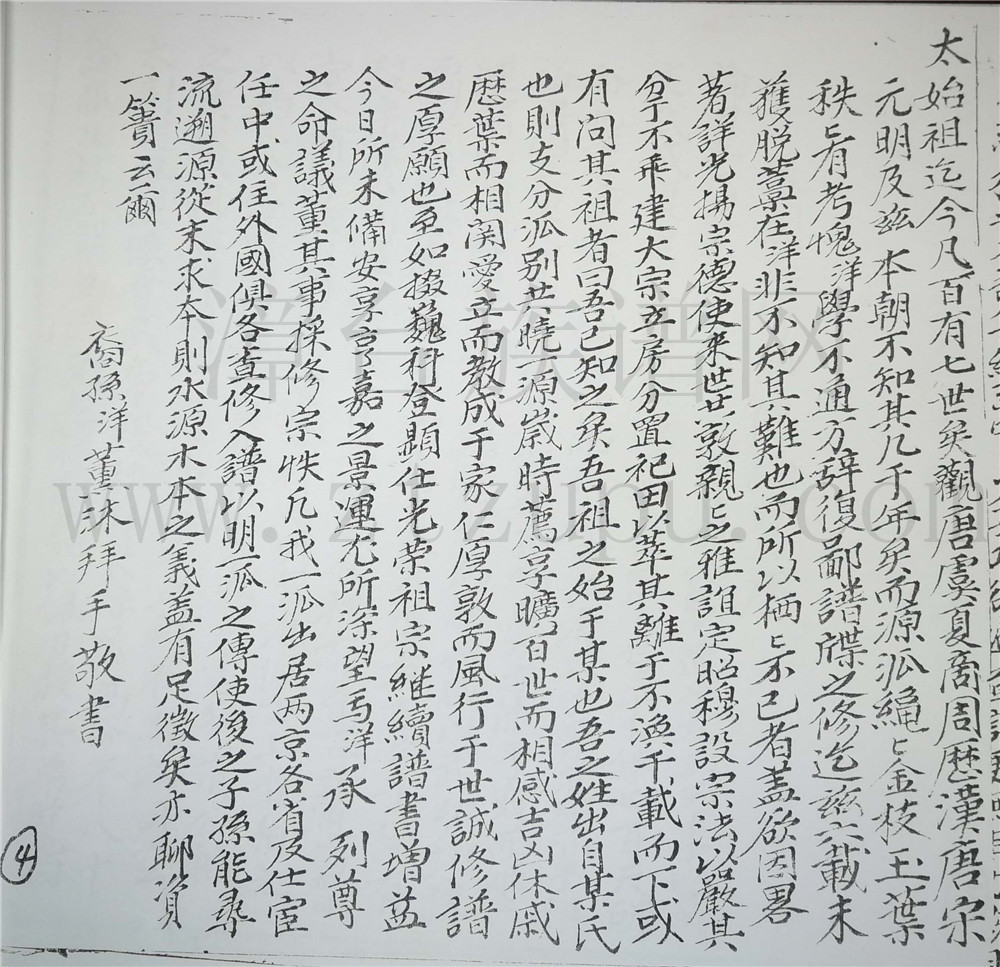 太始祖迄今凡百有七世矣觀唐虞夏商周歷漢唐宋
元明及茲 本朝不知其几千年矣而源泒繩〻金枝玉葉
秩〻有考愧洋學不通方辭復鄙譜牒之修迄茲六載未
獲脱藁在洋非不知其難也而所以栖〻不已者蓋欲因畧
著詳光揚宗德使来世共敦親〻之雅誼定昭穆設宗法以嚴其
分于不乖建大宗立房分置祀田以萃其離于不渙千載而下或
有问其祖者曰吾已知之矣吾祖之始于某也吾之姓出自某氏
也則支分泒别共曉一源歲時薦享曠百世而相感吉凶休戚
歷葉而相関愛立而教成于家仁厚敦而風行于世誠修譜
之厚願也至如掇巍科登顯仕光荣祖宗継續譜書增益
今日所未備安享亨嘉之景運尤所深望焉洋承 列尊
之命議董其事採修宗帙凡我一泒出居两京各省及仕宦
任中或往外國俱各查修入譜以明一泒之傳使後之子孫能尋
流遡源從末求本則水源木本之義盖有足徵矣亦聊資
一簣云爾
裔孫洋董沐拜手敬書
4
漳台族谱网
www.ztzupu.com